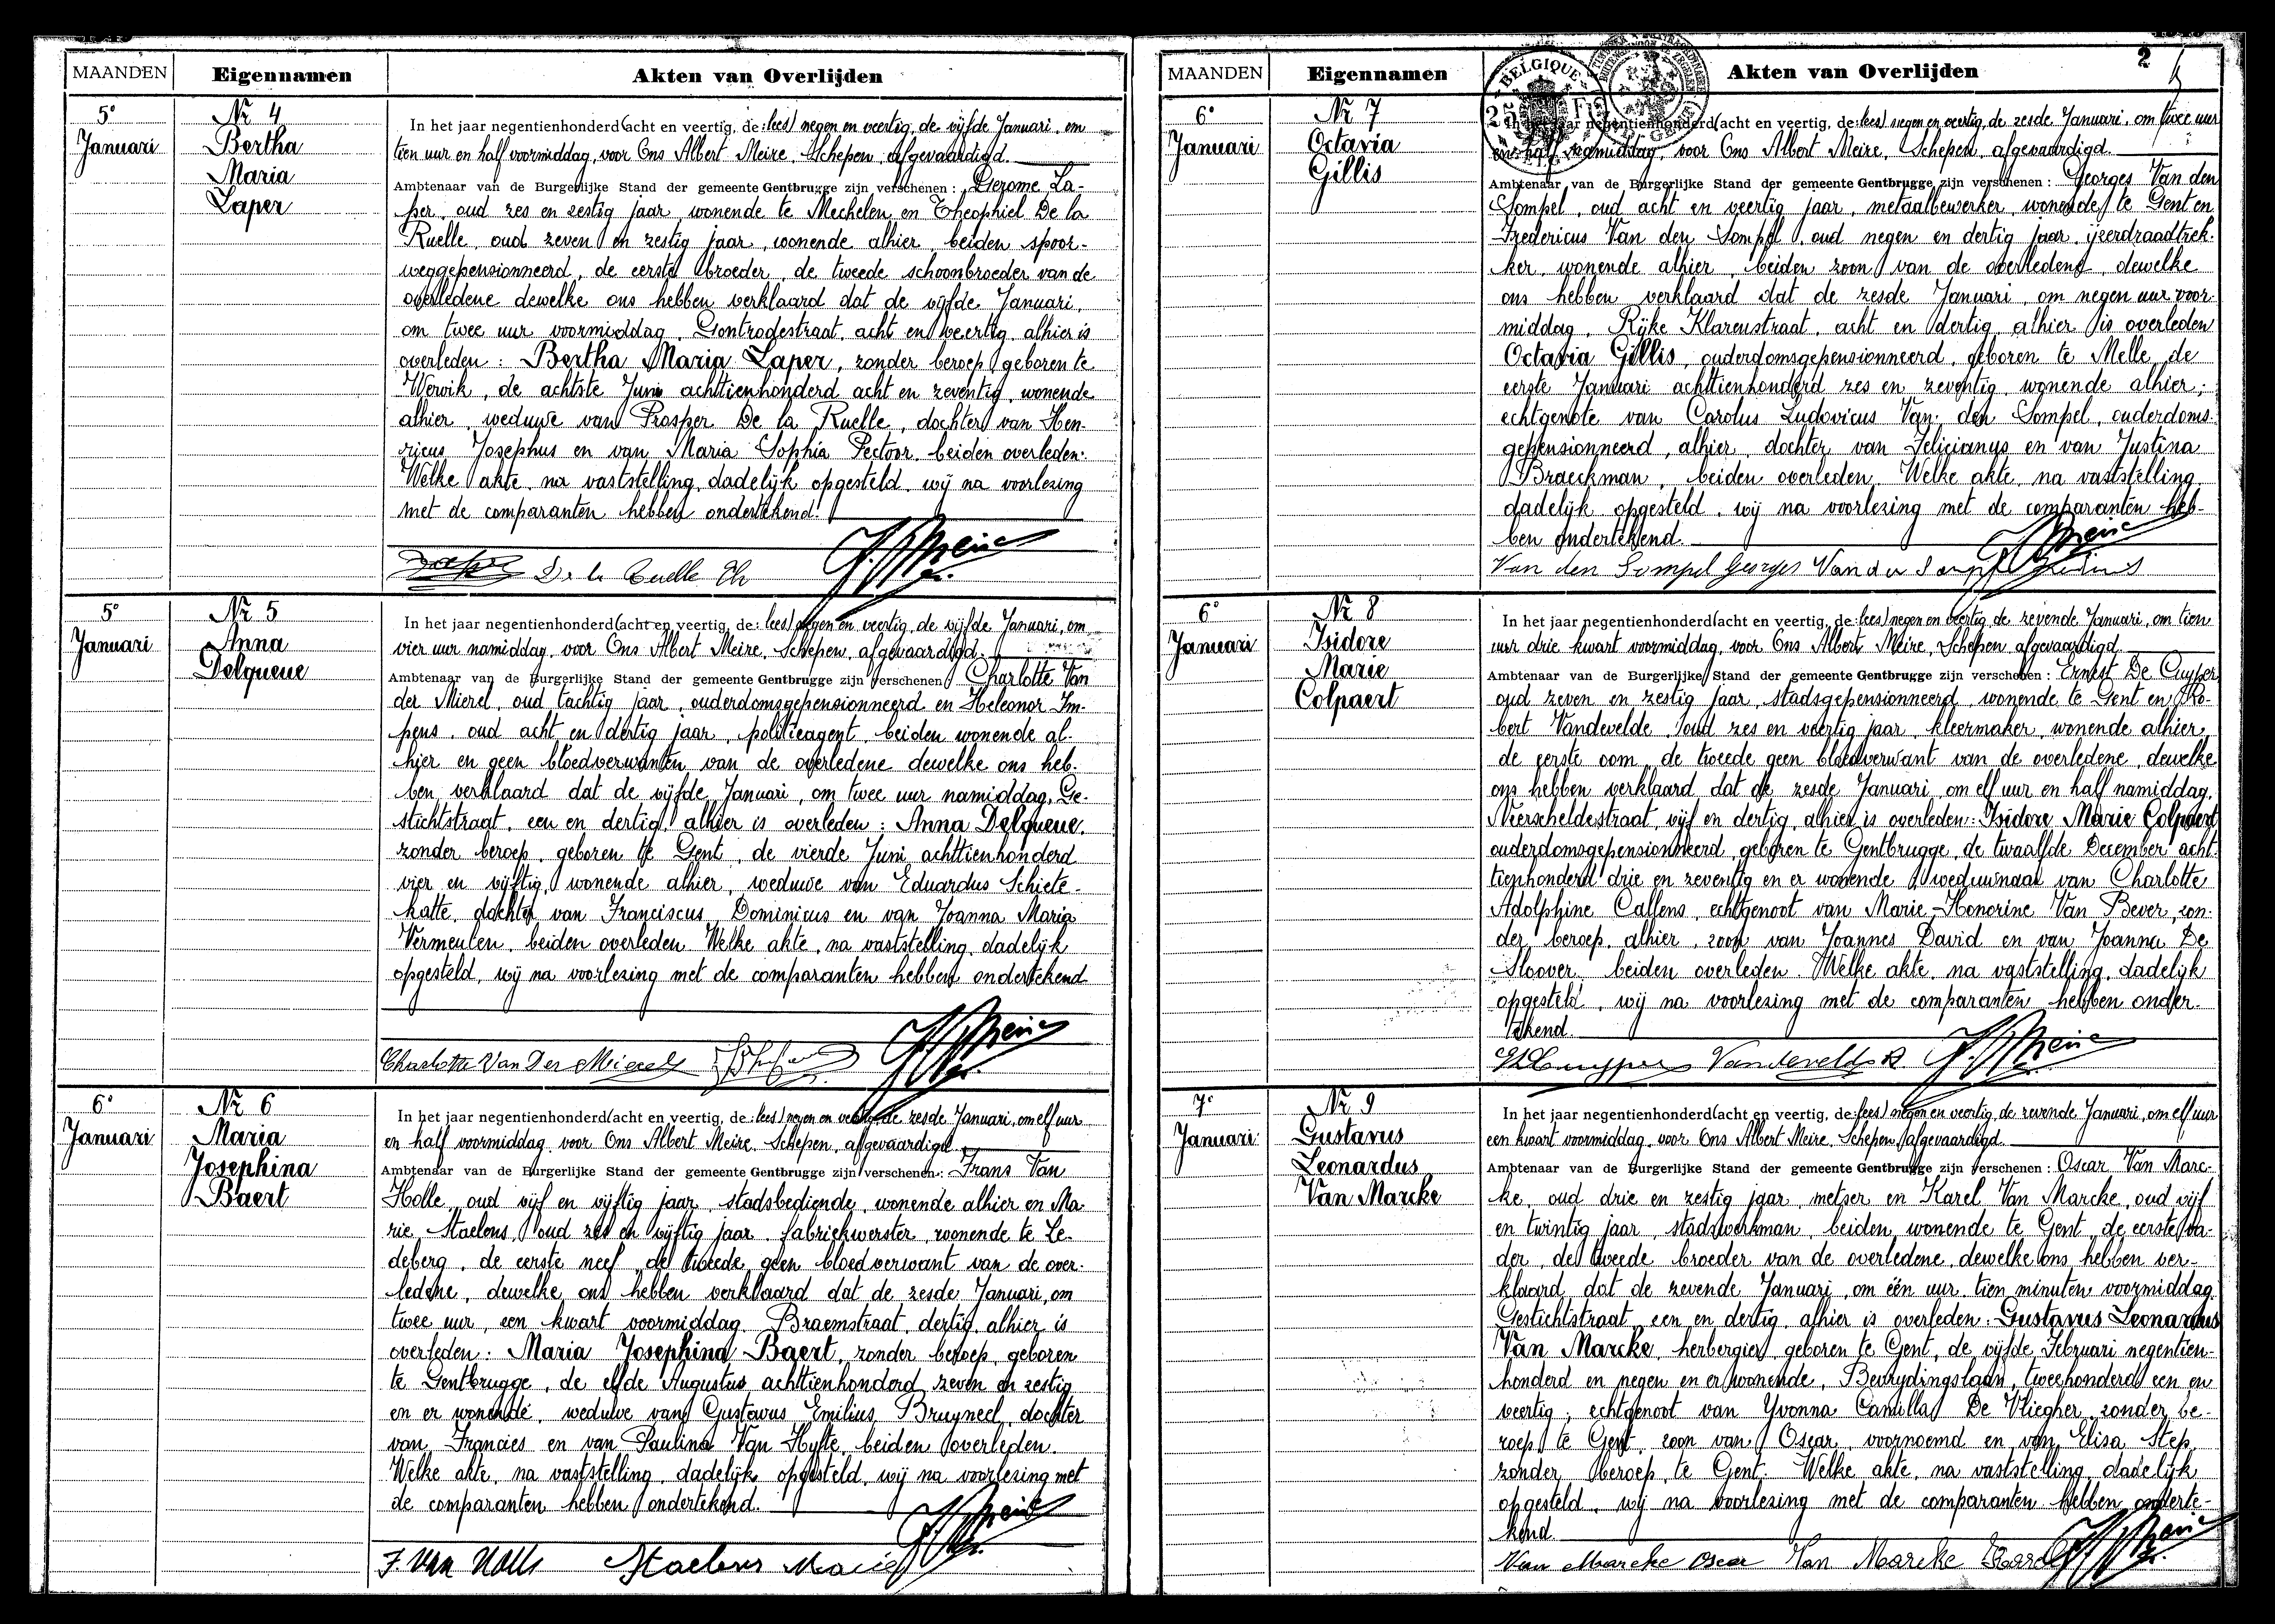 MAANDEN Eigennamen Akten van Overlijden
5e Januari
Nr 4
Bertha
Maria
Laper
In het jaar negentienhonderd (acht en veertig, de: lees) negen en veertig, de vijfde Januari, om
tien uur en half voormiddag, voor Ons Albert Meire, Schepen, afgevaardigd
Ambtenaar van de Burgerlijke Stand der gemeente Gentbrugge zijn verschenen: Gerome La-
per, oud zes en zestig jaar, wonende te Mechelen en Theophiel De la
Ruelle, oud zeven en zestig jaar, wonende alhier, beiden spoor-
weggepensionneerd, de eerste broeder, de tweede schoonbroeder van de
overledene dewelke ons hebben verklaard dat de vijfde Januari,
om twee uur voormiddag, Gontrodestraat, acht en veertig, alhier is
overleden: Bertha Maria Laper, zonder beroep, geboren te
Wervik, de achtste Juni achttienhonderd acht en zeventig, wonende
alhier, weduwe van Prosper De la Ruelle, dochter van Hen-
ricus Josephus en van Maria Sophia Pectoor, beiden overleden.
Welke akte, na vaststelling, dadelijk opgesteld, wij na voorlezing
met de comparanten hebben ondertekend.
De la Ruelle Th
5e Januari
Nr 5
Anna
Delqueue
In het jaar negentienhonderd (acht en veertig, de: lees) negen en veertig, de vijfde Januari, om
vier uur namiddag, voor Ons Albert Meire, Schepen, afgevaardigd
Ambtenaar van de Burgerlijke Stand der gemeente Gentbrugge zijn verschenen: Charlotte Van
der Mierel, oud tachtig jaar, ouderdomsgepensionneerd en Heleonor Im-
pens, oud acht en dertig jaar, politieagent, beiden wonende al-
hier en geen bloedverwanten van de overledene dewelke ons heb-
ben verklaard dat de vijfde Januari, om twee uur namiddag, Ge-
stichtstraat, een en dertig, alhier is overleden: Anna Delqueue,
zonder beroep, geboren te Gent, de vierde Juni achttienhonderd
vier en vijftig, wonende alhier, weduwe van Eduardus Schiete-
katte, dochter van Franciscus Dominicus en van Joanna Maria
Vermeulen, beiden overleden. Welke akte, na vaststelling, dadelijk
opgesteld, wij na voorlezing met de comparanten hebben ondertekend
Charlotte Van Der
6e Januari
Nr 6
Maria
Josephina
Baert
In het jaar negentienhonderd (acht en veertig, de: lees) negen en veertig, de zesde Januari, om elf uur
en half voormiddag, voor Ons Albert Meire, Schepen, afgevaardigd
Ambtenaar van de Burgerlijke Stand der gemeente Gentbrugge zijn verschenen: Frans Van
Holle, oud vijf en vijftig jaar, stadsbediende, wonende alhier en Ma
rie Staelens, oud zes en vijftig jaar, fabriekwerster, wonende te Le-
deberg, de eerste neef, de tweede geen bloedverwant van de over-
ledene, dewelke ons hebben verklaard dat de zesde Januari, om
twee uur, een kwart voormiddag, Braemstraat, dertig, alhier is
overleden: Maria Josephina Baert, zonder beroep, geboren
te Gentbrugge, de elfde Augustus achttienhonderd zeven en zestig
en er wonende, weduwe van Gustavus Emilius Bruyneel, dochter
van Francies en van Paulina Van Hyfte, beiden overleden.
Welke akte, na vaststelling, dadelijk opgesteld, wij na voorlezing met
de comparanten hebben ondertekend.
F. Van Holle Staelens Marie
MAANDEN Eigennamen Akten van Overlijden 2
BELGIQUE
6e Januari
Nr 7
Octavia
Gillis
In het jaar negentienhonderd (acht en veertig, de: lees) negen en veertig, de zesde Januari, om twee uur
en half namiddag, voor Ons Albert Meire, Schepen, afgevaardigd
Ambtenaar van de Burgerlijke Stand der gemeente Gentbrugge zijn verschenen: Georges Van den
Sompel, oud acht en veertig jaar, metaalbewerker, wonende te Gent en
Fredericus Van den Sompel, oud negen en dertig jaar, ijzerdraadtrek-
ker, wonende alhier, beiden zoon van de overledene, dewelke
ons hebben verklaard dat de zesde Januari, om negen uur voor-
middag, Rijke Klarenstraat, acht en dertig, alhier is overleden
Octavia Gillis, ouderdomsgepensionneerd, geboren te Melle, de
eerste Januari achttienhonderd zes en zeventig, wonende alhier;
echtgenote van Carolus Ludovicus Van den Sompel, ouderdoms-
gepensionneerd, alhier, dochter van Felicianus en van Justina
Braeckman, beiden overleden. Welke akte, na vaststelling,
dadelijk opgesteld, wij na voorlezing met de comparanten heb-
ben ondertekend.
Van den Sompel Georges
6e Januari
Nr 8
Isidore
Marie
Colpaert
In het jaar negentienhonderd (acht en veertig, de: lees) negen en veertig, de zevende Januari, om tien
uur drie kwart voormiddag, voor Ons Albert Meire, Schepen, afgevaardigd
Ambtenaar van de Burgerlijke Stand der gemeente Gentbrugge zijn verschenen: Ernest De Cuyper
oud zeven en zestig jaar, stadsgepensionneerd, wonende te Gent en Ro-
bert Vandevelde, oud zes en veertig jaar, kleermaker, wonende alhier,
de eerste oom, de tweede geen bloedverwant van de overledene, dewelke
ons hebben verklaard dat de zesde Januari, om elf uur en half namiddag,
Neerscheldestraat, vijf en dertig, alhier is overleden: Isidore Marie Colpaert
ouderdomsgepensionneerd, geboren te Gentbrugge, de twaalfde December acht-
tienhonderd drie en zeventig en er wonende, weduwnaar van Charlotte
Adolphine Callens, echtgenoot van Marie-Honorine Van Bever, zon-
der beroep, alhier, zoon van Joannes David en van Joanna De
Sloover, beiden overleden. Welke akte, na vaststelling, dadelijk
opgesteld, wij na voorlezing met de comparanten hebben onder-
tekend.
Vandevelde R.
7e Januari
Nr 9
Gustavus
Leonardus
Van Marcke
In het jaar negentienhonderd (acht en veertig, de: lees) negen en veertig, de zevende Januari, om elf uur
een kwart voormiddag, voor Ons Albert Meire, Schepen, afgevaardigd
Ambtenaar van de Burgerlijke Stand der gemeente Gentbrugge zijn verschenen: Oscar Van Marc-
ke, oud drie en zestig jaar, metser en Karel Van Marcke, oud vijf
en twintig jaar, stadswerkman, beiden wonende te Gent, de eerste va-
der, de tweede broeder van de overledene, dewelke ons hebben ver-
klaard dat de zevende Januari, om één uur, tien minuten voormiddag,
Gestichtstraat, een en dertig, alhier is overleden: Gustavus Leonardus
Van Marcke, herbergier, geboren te Gent, de vijfde Februari negentien-
honderd en negen en er wonende, Bevrydingslaan, tweehonderd een en
veertig; echtgenoot van Yvonna Camilla De Vliegher, zonder be-
roep, te Gent, zoon van Oscar, voornoemd en van Elisa Step,
zonder beroep, te Gent. Welke akte, na vaststelling, dadelijk
opgesteld, wij na voorlezing met de comparanten hebben onderte-
kend.
Van Marcke Oscar Van Marcke Karel